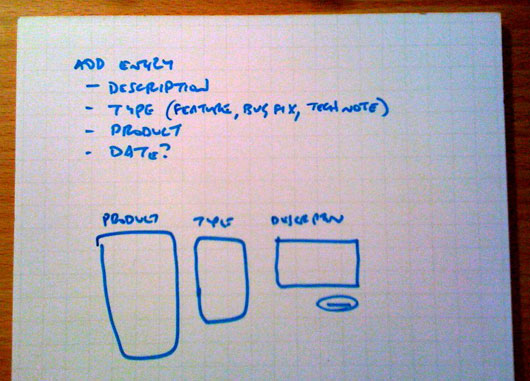 ADD ENTRY
- DESCRIPTION
- TYPE (FEATURE, BUG FIX, TECH NOTE)
- PRODUCT
- DATE?
PRODUCT TYPE DESCRIPTION